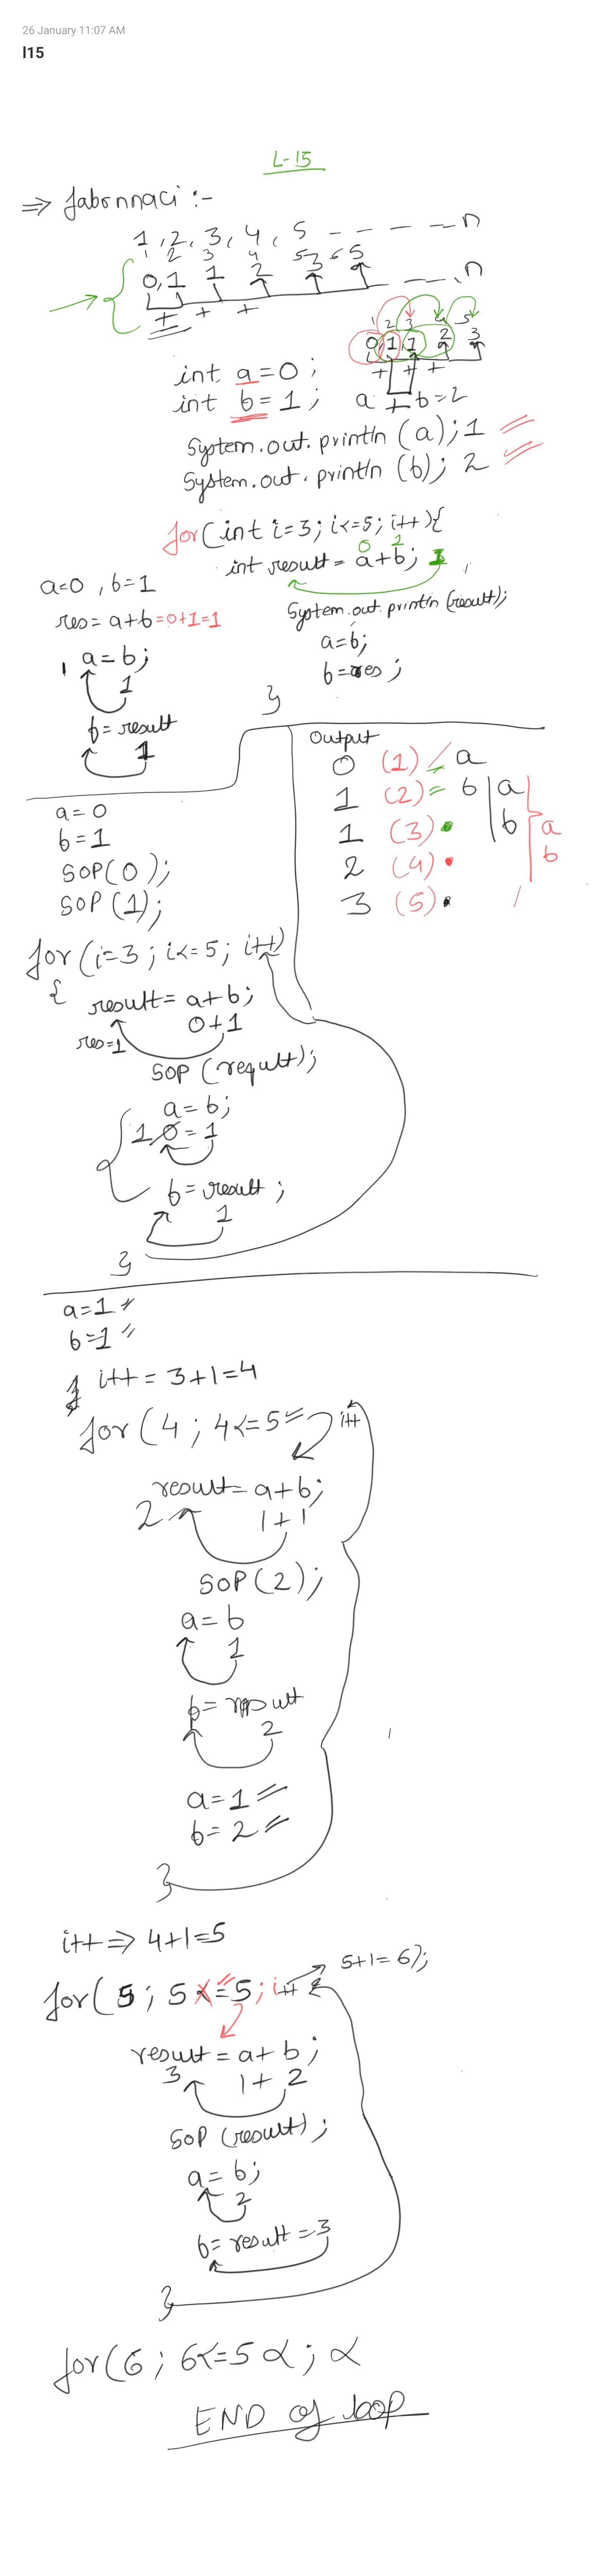 26 January 11:07 AM
l15
L-15
⇒ fabonnaci :-
1, 2, 3, 4, 5 - - - - - n
1 2 3 4 5 6
0, 1 1 2 3 5 - - - . n
+ + +
1 2 3 4 5
0 1 1 2 3
+ + +
int a=0 ;
int b=1 ; a + b=2
System.out.println (a); 1
System.out.println (b); 2
for (int i=3; i<=5; i++){
0 1
int result= a+b; 1
System.out.println (result);
a=b;
b=res ;
}
a=0 , b=1
res= a+b=0+1=1
1 a=b;
1
b=result
1
Output
0 (1) a
1 (2)= b a
1 (3) b a
2 (4) b
3 (5)
a=0
b=1
SOP(0);
SOP(1);
for (i=3 ; i<=5; i++)
{ result= a+b;
0+1
res=1
SOP (reqult);
a=b;
1 0=1
b=result ;
1
}
a=1
b=1
i++ = 3+1=4
for (4 ; 4<=5 i++
result= a+b;
2 1+1
SOP(2);
a=b
1
b= result
2
a=1
b=2
}
i++ ⇒ 4+1=5
5+1=6);
for(5; 5<=5; i++
result=a+b;
3 1+2
SOP (result);
a=b;
2
b=result=3
}
for(6 ; 6<=5 α; α
END of loop